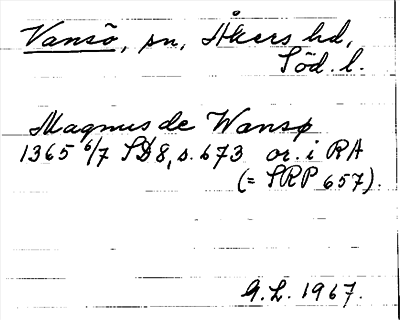 Vansö, sn, Åkers hd,
Söd. l.
Magnus de Wansø
1365 6/7 SD8, s. 673 or. i RA
(= SRP 657).
G.L. 1967.